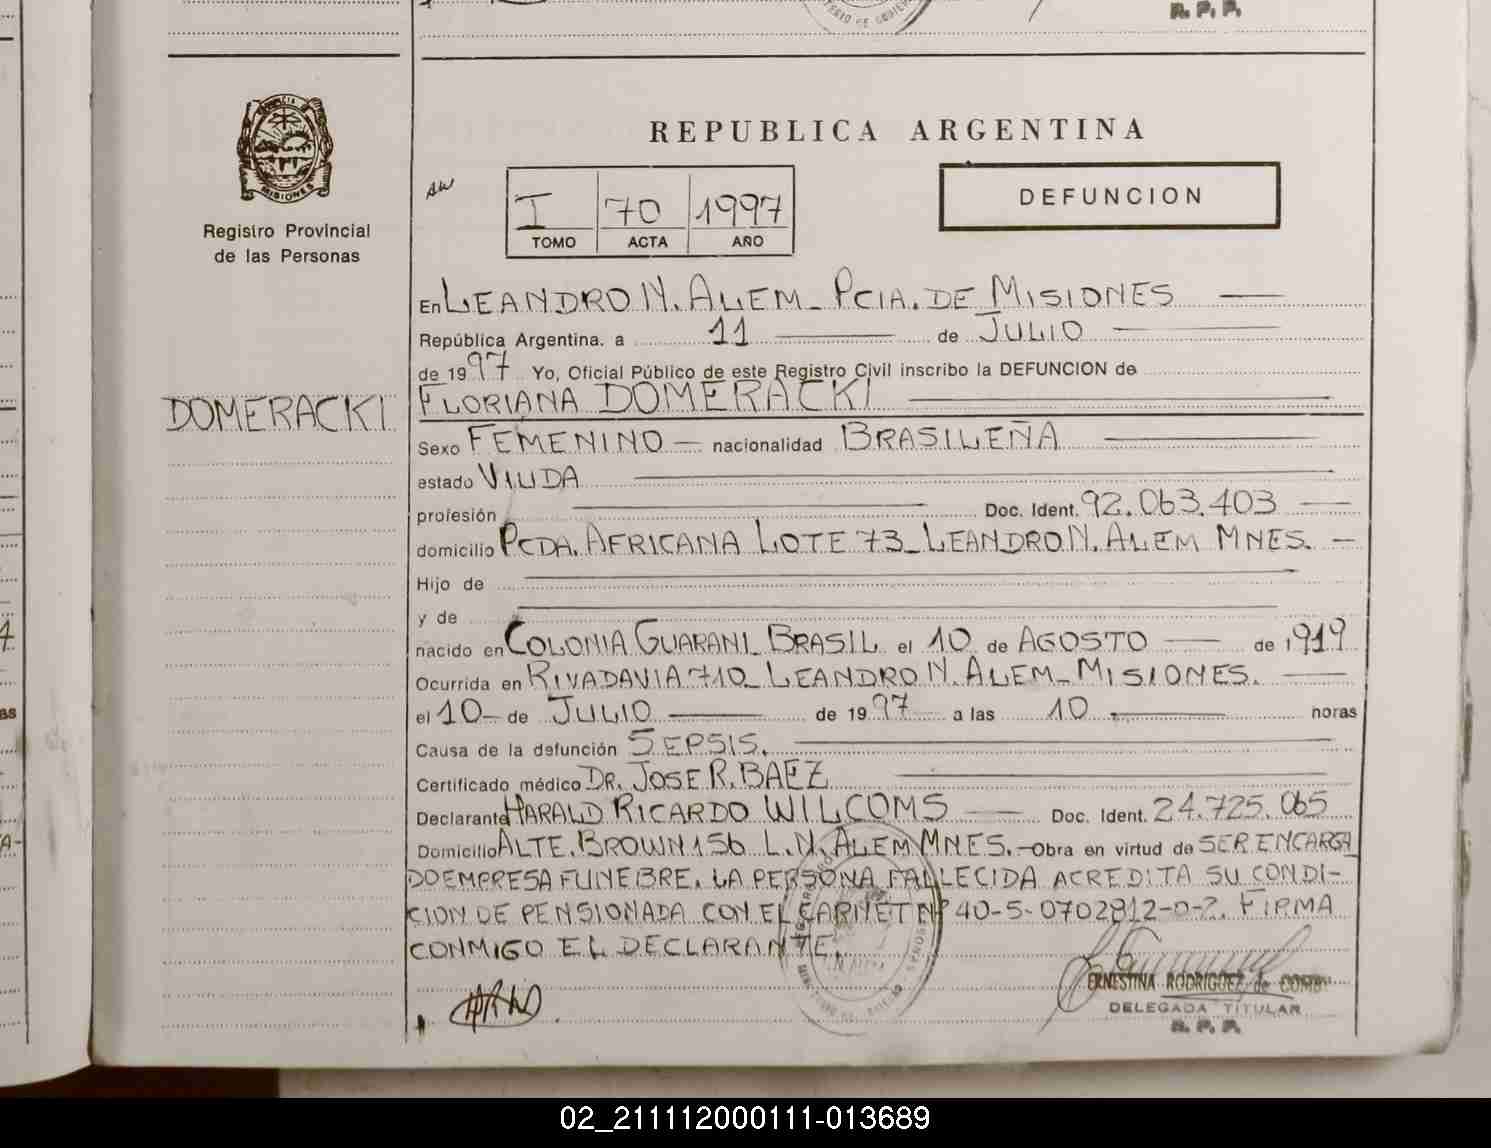 R. P. P.
MISIONES
Registro Provincial
de las Personas
REPUBLICA ARGENTINA
I 70 1997
TOMO ACTA AÑO
DEFUNCION
En LEANDRO N. ALEM - PCIA. DE MISIONES
República Argentina. a 11 de JULIO
de 1997 Yo, Oficial Público de este Registro Civil inscribo la DEFUNCION de
DOMERACKI
FLORIANA DOMERACKI
Sexo FEMENINO - nacionalidad BRASILEÑA
estado VIUDA
profesión Doc. Ident. 92.063.403
domicilio PCDA. AFRICANA LOTE 73 - LEANDRO N. ALEM MNES. -
Hijo de
y de
nacido en COLONIA GUARANI - BRASIL el 10 de AGOSTO de 1919
Ocurrida en RIVADAVIA 710 - LEANDRO N. ALEM - MISIONES.
el 10 - de JULIO de 1997 a las 10 horas
Causa de la defunción SEPSIS.
Certificado médico DR. JOSE R. BAEZ
Declarante HARALD RICARDO WILCOMS Doc. Ident. 24.725.065
Domicilio ALTE. BROWN 156 L.N. ALEM MNES. - Obra en virtud de SER ENCARGA
DO EMPRESA FUNEBRE. LA PERSONA FALLECIDA ACREDITA SU CONDI-
CION DE PENSIONADA CON EL CARNET Nº 40-5-0702812-0-2. FIRMA
CONMIGO EL DECLARANTE.
ERNESTINA RODRIGUEZ de
DELEGADA TITULAR
R. P. P.
02_211112000111-013689